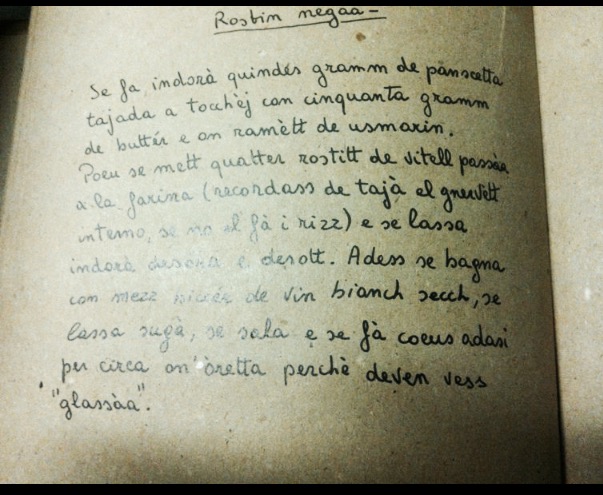 Rostin negaa-
Se fa indorà quindes gramm de panscetta
tajada a tocchèj con cinquanta gramm
de buttér e on ramètt de usmarin.
Poeu se mett quatter rostitt de vitell passàa
a la farina (recordass de tajà el gnervètt
interno, se no el fà i rizz) e se lassa
indorà desora e desott. Adess se bagna
con mezz biccér de vin bianch secch, se
lassa sugà, se sala e se fà coeus adasi
per circa on'oretta perchè deven vess
"glassàa".